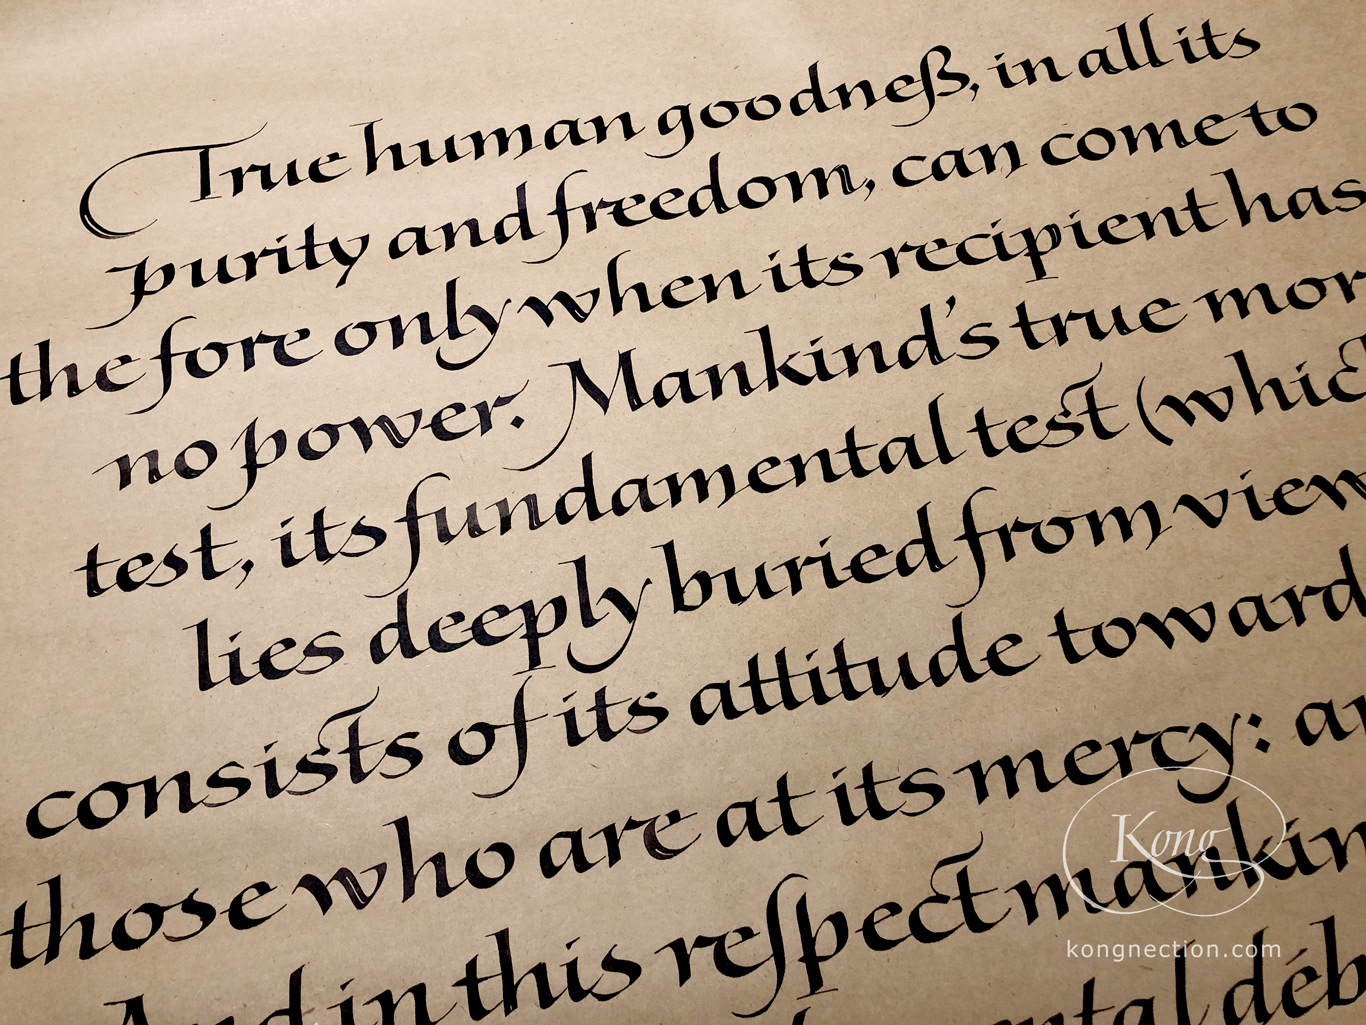 True human goodneß, in all its
purity and freedom, can come to
the fore only when its recipient has
no power. Mankind's true mor
test, its fundamental test (whic
lies deeply buried from view
consists of its attitude toward
those who are at its mercy: an
And in this reſpect mankin
ental déb
Kong
kongnection.com